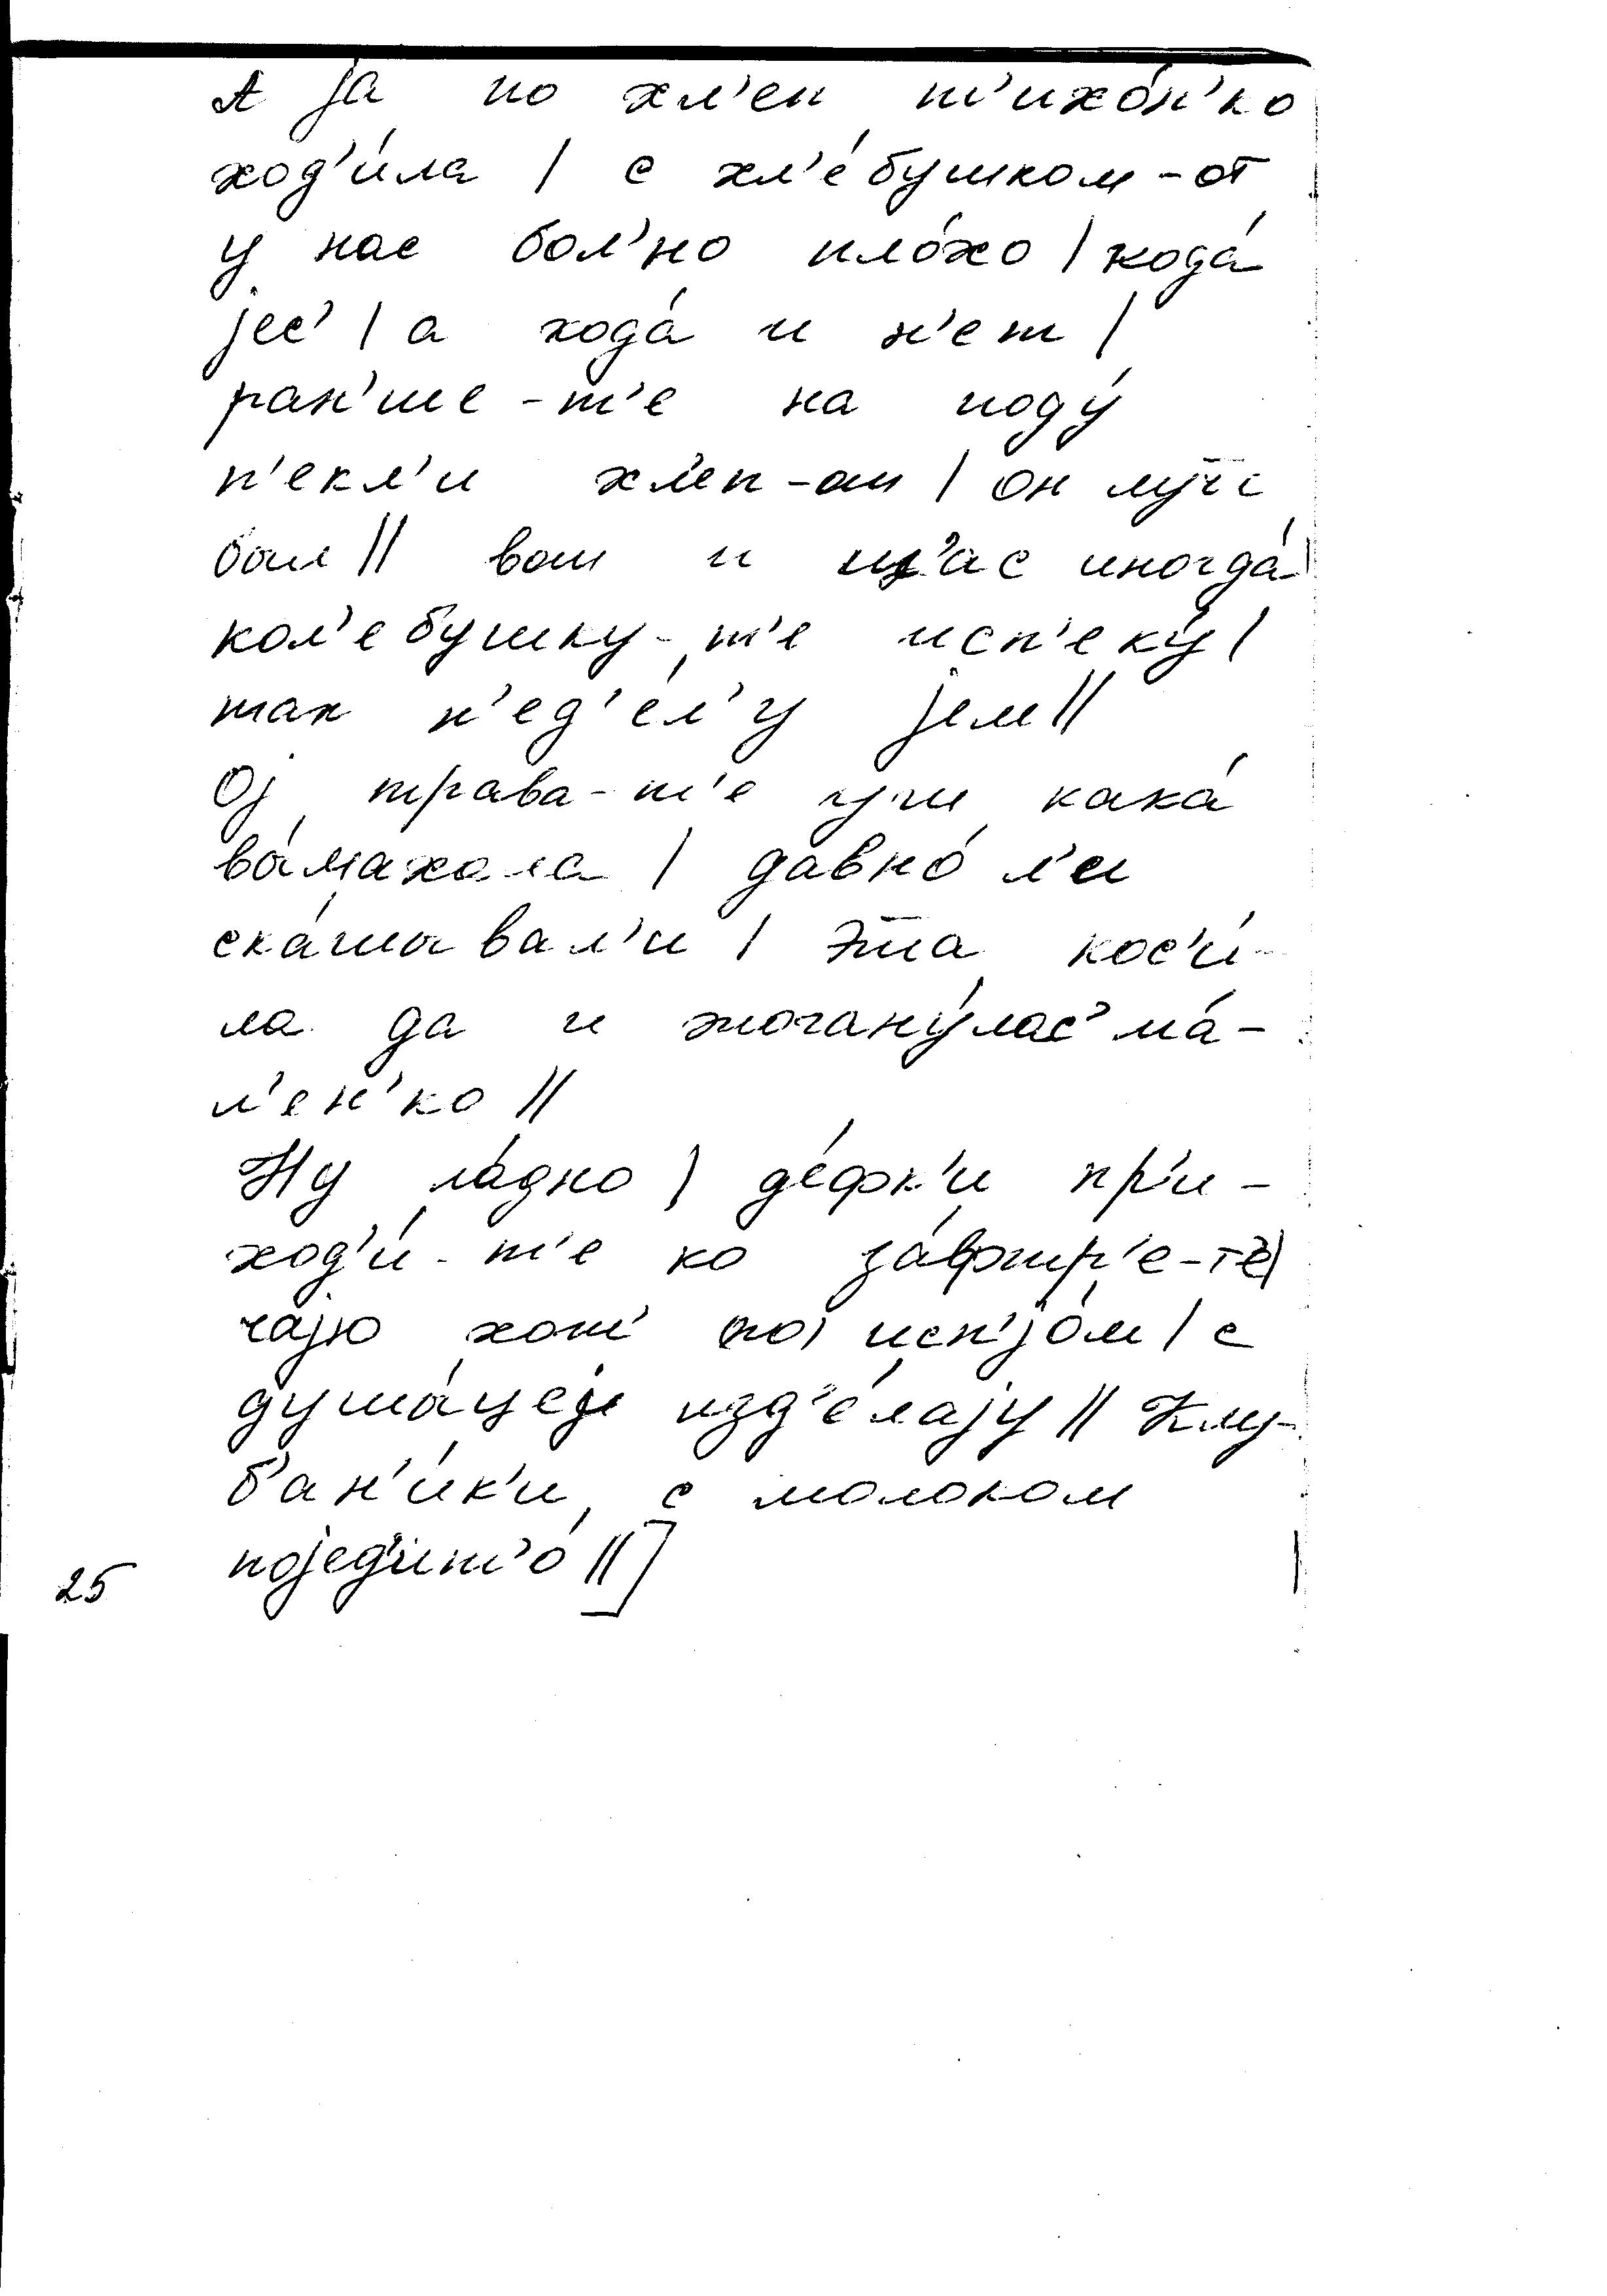 А jа по хл'еп т'ихо́н'ко
ход'и́ла | с хл'е́бушком-от
у нас бол'но пло́хо | кода́
jес' | а кода́ и н'ет |
ран'ше-т'е на поду́
п'екл'и хл'еп-ат | он
был || вот и щ'ас иногда́
кол'ебушку-т'е исп'еку́ |
так н'ед'е́л'у jем ||
Оj трава-т'е уж кака́
вы́махала | давно́ л'и
ска́шывал'и | Эта кос'и́-
ла да и жогану́лас' ма́-
л'ен'ко ||
Ну ла́дно | де́фк'и пр'и-
ход'и́-т'е ко за́фтр'е-те |
чаjю хот' по исп'jо́м | с
душы́цеjе изд'е́лаjу ||Клу-
б'ан'и́к'и с молоком
поjед'ит'о́ || ]
25